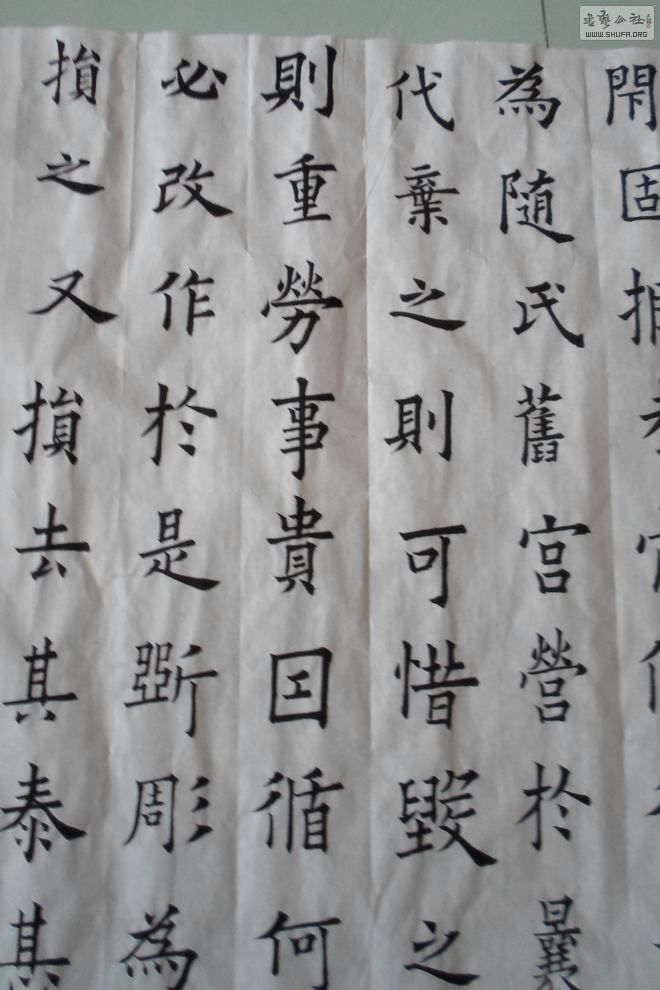 固
為随氏舊宫營於曩
代棄之則可惜毀之
則重勞事貴因循何
必改作於是斵彫為
損之又損去其泰其
書藝公社
WWW.SHUFA.ORG